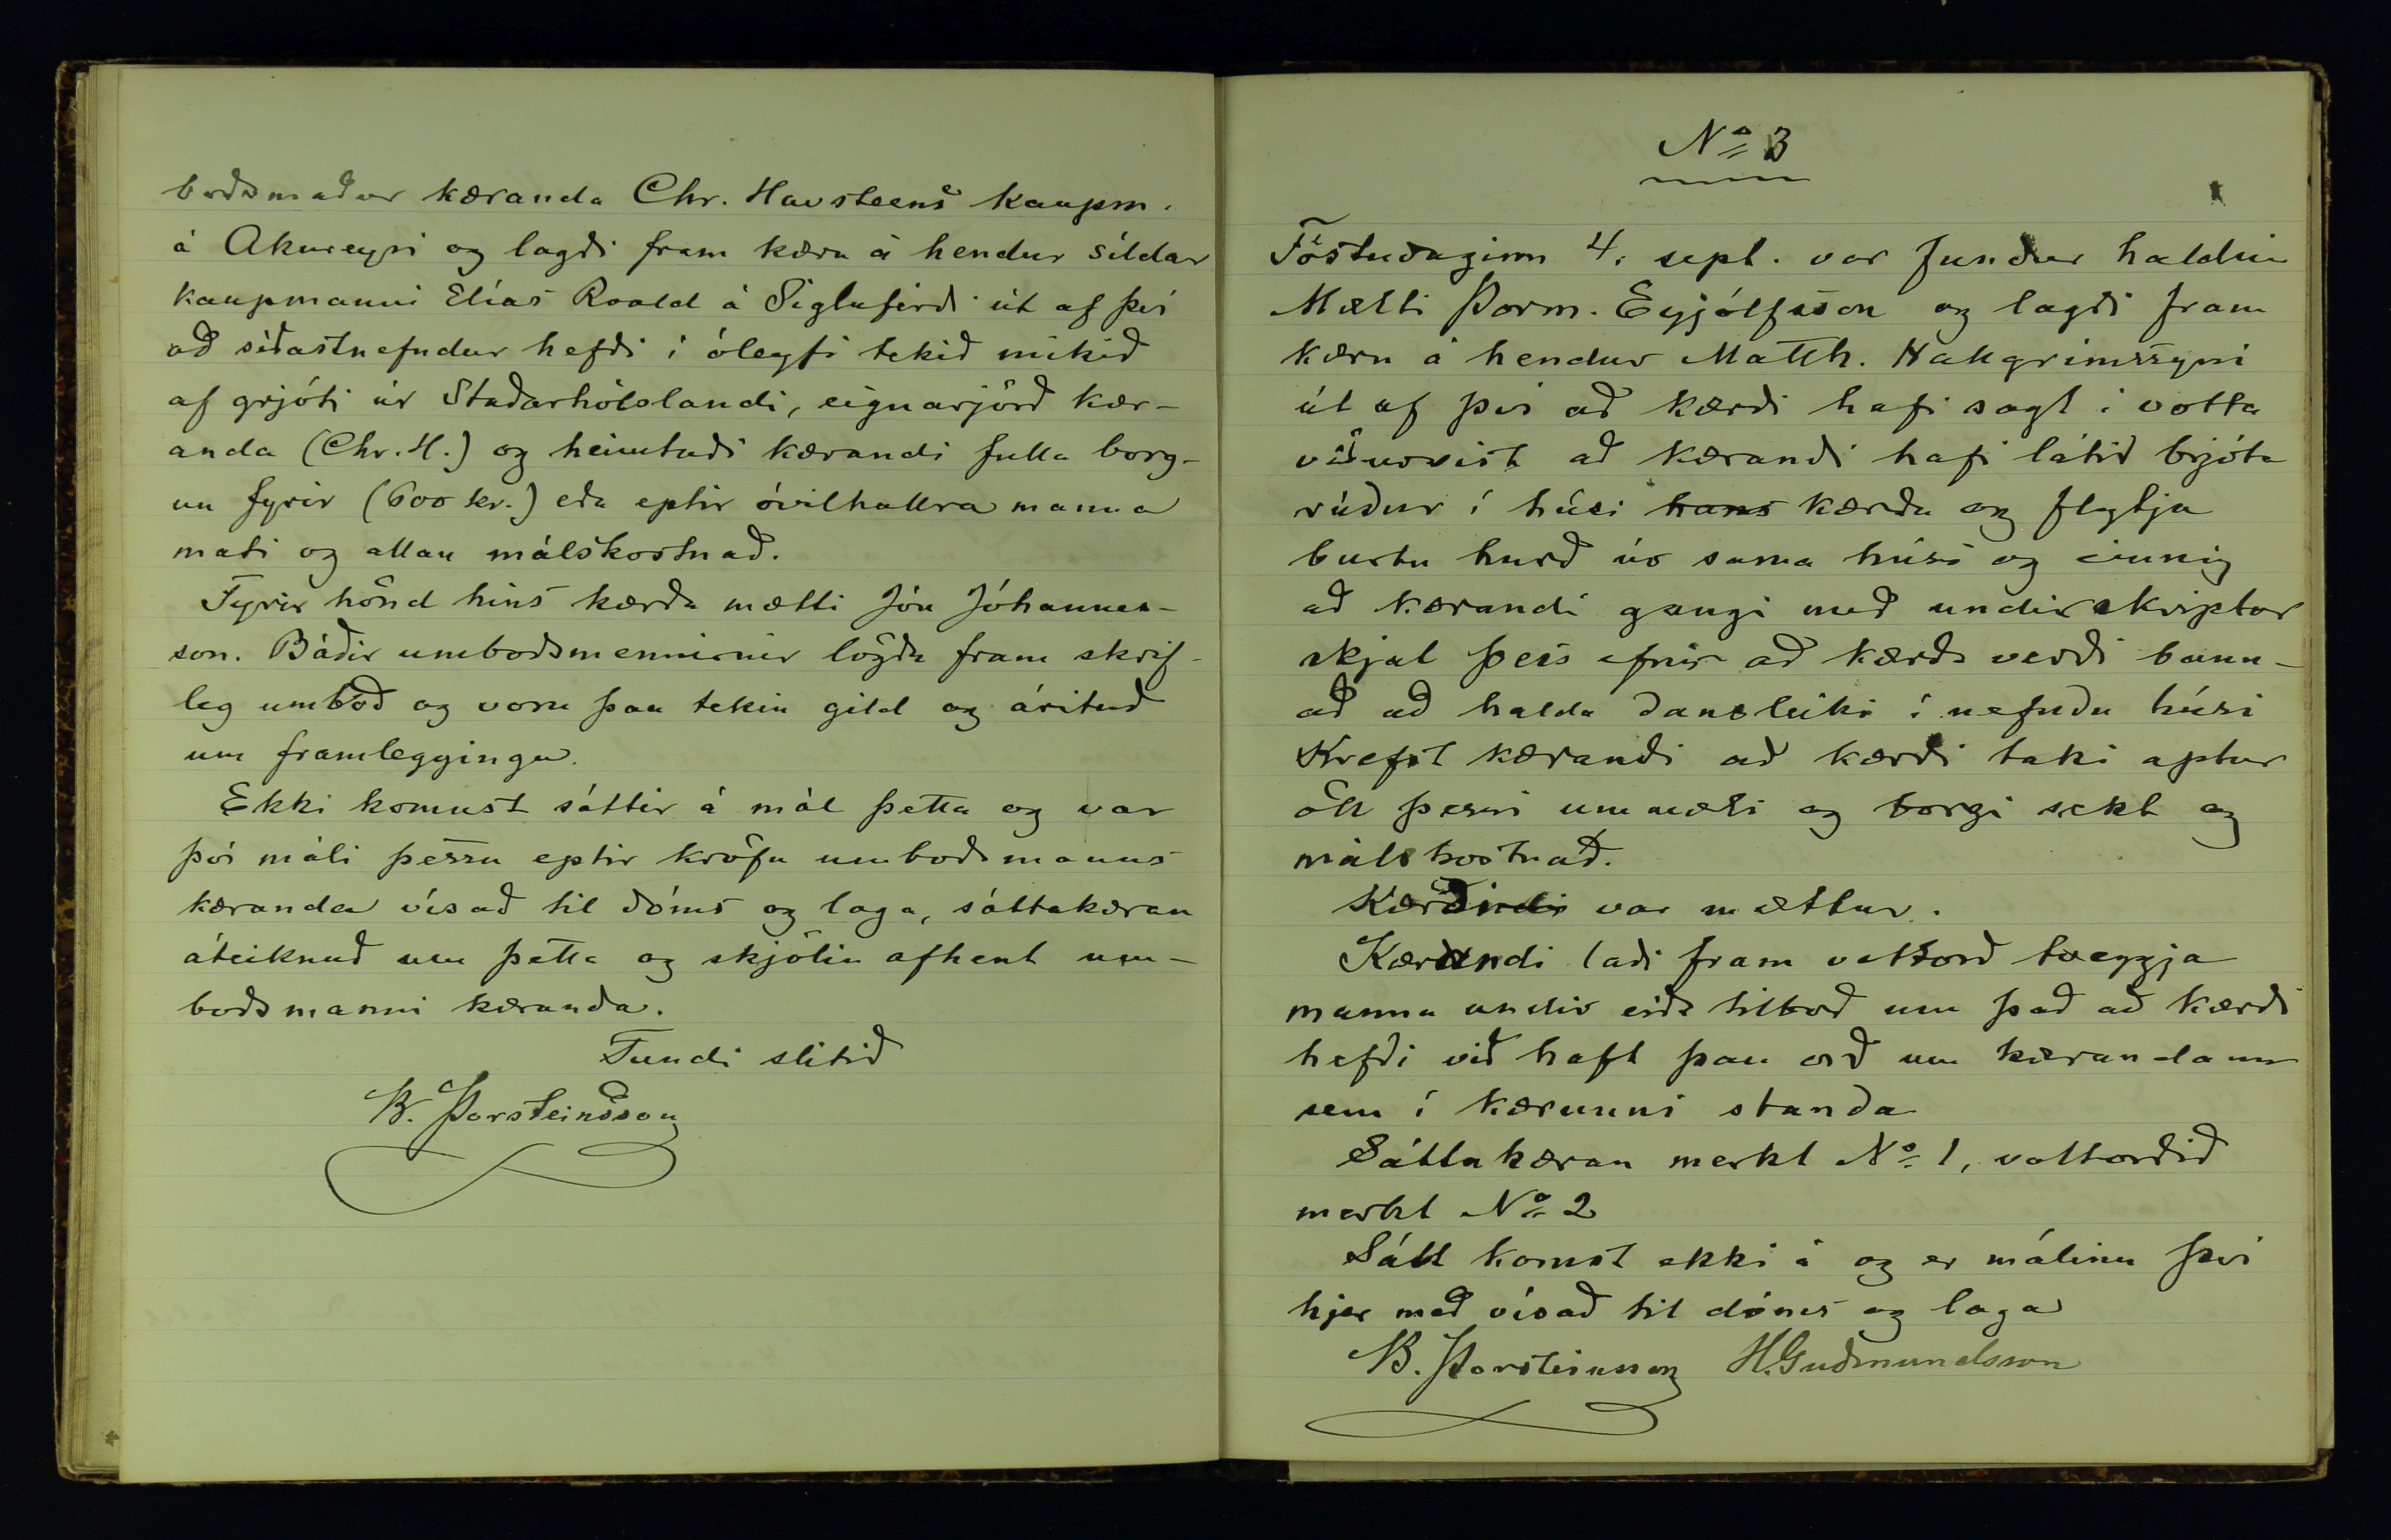 boðsmaður kæranda Chr. Havsteens kaupm.
á Akureyri og lagði fram kæru á hendur síldar
kaupmanni Elías Roald á Siglufirði út af því
að síðastnefndur hefði í óleyfi tekið mikið
af grjóti úr Staðarhólslandi, eignarjörð kær-
anda (Chr. H.) og heimtaði kærandi fulla borg-
un fyrir (600 kr.) eða eptir óvilhallra manna
mati og allan málskostnað.
Fyrir hönd hins kærða mætti Jón Jóhannes-
son. Báðir umboðsmennirnir lögðu fram skrif-
leg umboð og voru þau tekin gild og árituð
um framleggingu.
Ekki komust sáttir á mál þetta og var
því máli þessu eptir kröfu umboðsmanns
kæranda vísað til dóms og laga, sáttakæran
áteiknuð um þetta og skjölin afhent um-
boðsmanni kæranda.
Fundi slitið
B. Þorsteinsson
No 3
Föstudaginn 4. sept. var fundur haldin
Mætti Þorm. Eyjólfsson og lagði fram
kæru á hendur Matth. Hallgrímssyni
út af því að kærði hafi sagt í votta
viðurvist að kærandi hafi látið brjóta
rúður í húsi hans kærða og flytja
burtu hurð úr sama húsi og einnig
að kærandi gangi með undirskriptar
skjal þess efnis að kærða verði bann-
að að halda dansleiki í nefndu húsi
Krefst kærandi að kærði taki aptur
öll þessi ummæli og borgi sekt og
málskostnað.
Kærði var mættur.
Kærandi laði fram vottorð tveggja
manna undir eiðs tilboð um það að kærði
hefði við haft þau orð um kærandann
sem í kærunni standa
Sáttakæran merkt No 1, vottorðið
merkt No 2
Sátt komst ekki á og er málinu því
hjer með vísað til dóms og laga
B. Þorsteinsson H. Guðmundsson